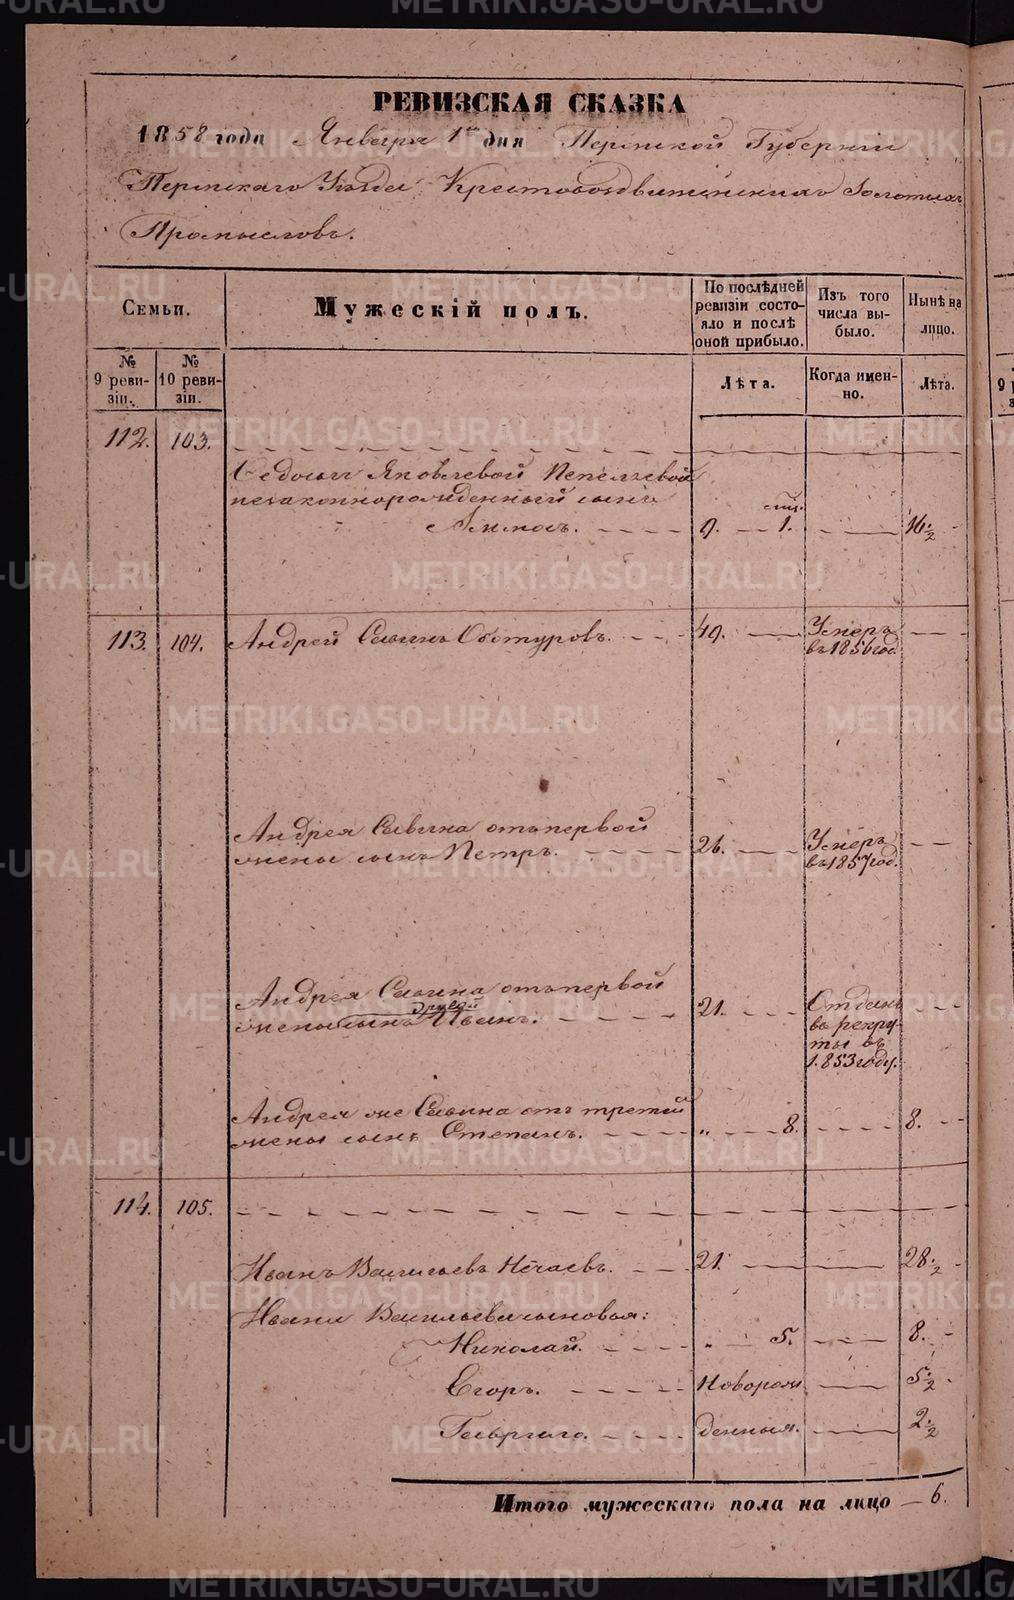 РЕВИЗСКАЯ СКАЗКА
1858 года Января 1го дня Пермской Губерніи
Пермскаго Уѣзда Крестовоздвиженскихъ Золотыхъ
Промысловъ.
Семьи.
Мужескій полъ.
По послѣдней ревизіи состояло и послѣ оной прибыло.
Изъ того числа выбыло.
Нынѣ на лицо.
№ 9 ревизіи.
№ 10 ревизіи.
Лѣта.
Когда именно.
Лѣта.
112. 103.
Федосьи Яковлевой Пепеляевой
незаконнорожденный сынъ
9. 1. 16 1/2
113. 104. Андрей Савинъ Обтуровъ. 49. Умеръ въ 1856 год.
Андрея Савина отъ первой
жены сынъ Петръ. 26. Умеръ въ 1857 год.
Андрея Савина отъ первой
другой
жены сынъ Иванъ. 21. Отданъ въ рекруты въ 1853 году.
Андрея же Савина отъ третей
жены сынъ Степанъ. „ 8. 8.
114. 105.
Иванъ Васильевъ Нечаевъ. 21. 28 1/2
Ивана Васильева сыновья:
Николай. „ 5. 8.
Егоръ. Новорож 5 1/2
Георгій. денныя. 2 1/2
Итого мужескаго пола на лицо 6.
METRIKI.GASO-URAL.RU